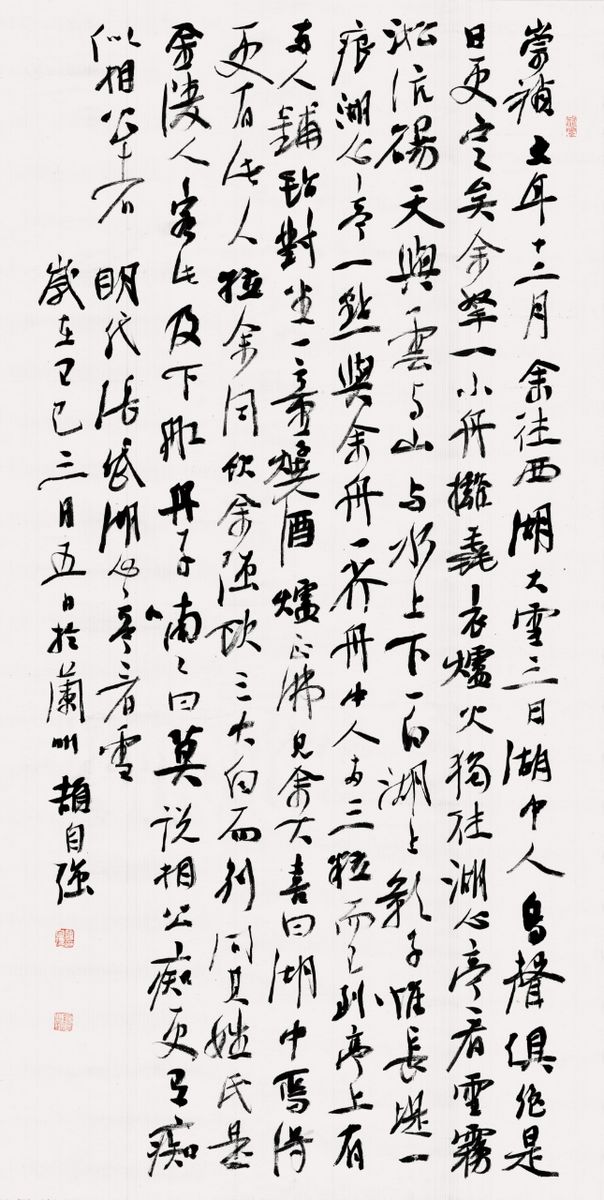 崇禎五年十二月余往西湖大雪三日湖中人鳥聲俱絕是
日更定矣余拏一小舟擁毳衣爐火獨往湖心亭看雪霧
淞沆碭天與雲与山与水上下一白湖上影子惟長堤一
痕湖心亭一點與余舟一芥舟中人兩三粒而已到亭上有
兩人鋪氈對坐一童燒酒爐正沸見余大喜曰湖中焉得
更有此人拉余同飲余強飲三大白而別問其姓氏是
金陵人客此及下船舟子喃喃曰莫說相公痴更有痴
似相公者 明代張岱湖心亭看雪
歲在巳三月五日於蘭州 頡自強